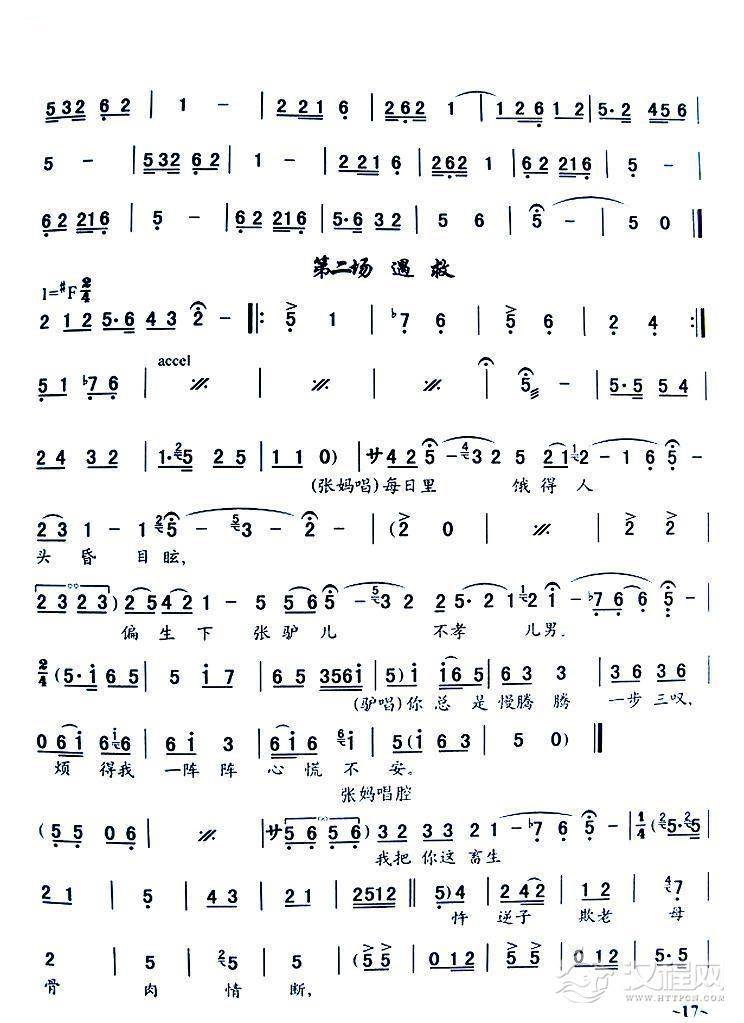 5 3 2 6 2 | 1 - | 2 2 2 1 6 | 2 6 2 1 | 1 2 6 1 2 | 5· 2 4 5 6
5 - | 5 3 2 6 2 | 1 - | 2 2 2 1 6 | 2 6 2 1 | 6 2 2 1 6 | 5 - |
6 2 2 1 6 | 5 - | 6 2 2 1 6 | 5· 6 3 2 | 5 6 | 5 - | 5 0 ‖
第二场 遇救
1=#F 2/4
2 1 2 5· 6 4 3 2 - ‖: 5 1 | b7 6 | 5 6 | 2 4 :‖
accel
5 1 b7 6 | | | | 5 | 5· 5 5 4 |
2 4 3 2 | 1· 5 2 5 | 1 1 0) | サ 4 2 5 - 3 2 5 2 1 2 - 1 6 5
(张妈唱)每日里 饿得人
2 3 1 - 1 - 5 - 3 - 2 - (2 0 | | 2 2 |
头昏目眩,
2 3 2 3) 2 5 4 2 1 - 5 5 2 - 3 2 2 5· 2 - b7 6 6 5 |
偏生下张驴儿 不孝儿男.
2/4 (5· i 6 5 | 5 i 7 | 6 5 3 5 6 i | 5) i i 6 5 | 6 3 3 | 3 6 3 6 |
(驴唱)你总是慢腾腾 一步三叹,
0 6 i 6 i | i 6 3 | 6 i 6 | (5 6 4 3 2 | 5 0) ‖
烦得我一阵阵心慌不安。
张妈唱腔
(5 5 0 6 | | サ 5 6 5 6) 3 2 3 3 2 1 - b7 6 5 - | 1/4 (5· 5 |
我把你这畜生
2 1 | 5 | 4 3 | 2 1 | 2 5 1 2 ‖ 5) 4 | 2 4 2 | 1 2 | 7 |
忤逆子欺老母
2 | 5 | 2 | 5 | (5 5 | 0 1 2 | 5 5 | 0 1 2 | 5· 5 |
骨肉情断,
汉程网
WWW.HTTPCN.COM
~17~